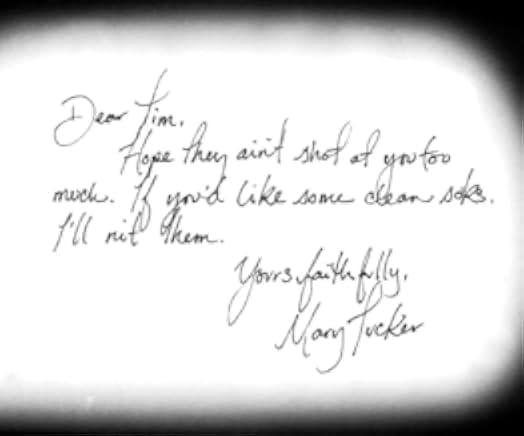 Dear Tim.
Hope they ain't shot at you too
much. If you'd like some clean soks.
I'll nit them.
Yours faithfully,
Mary Tucker